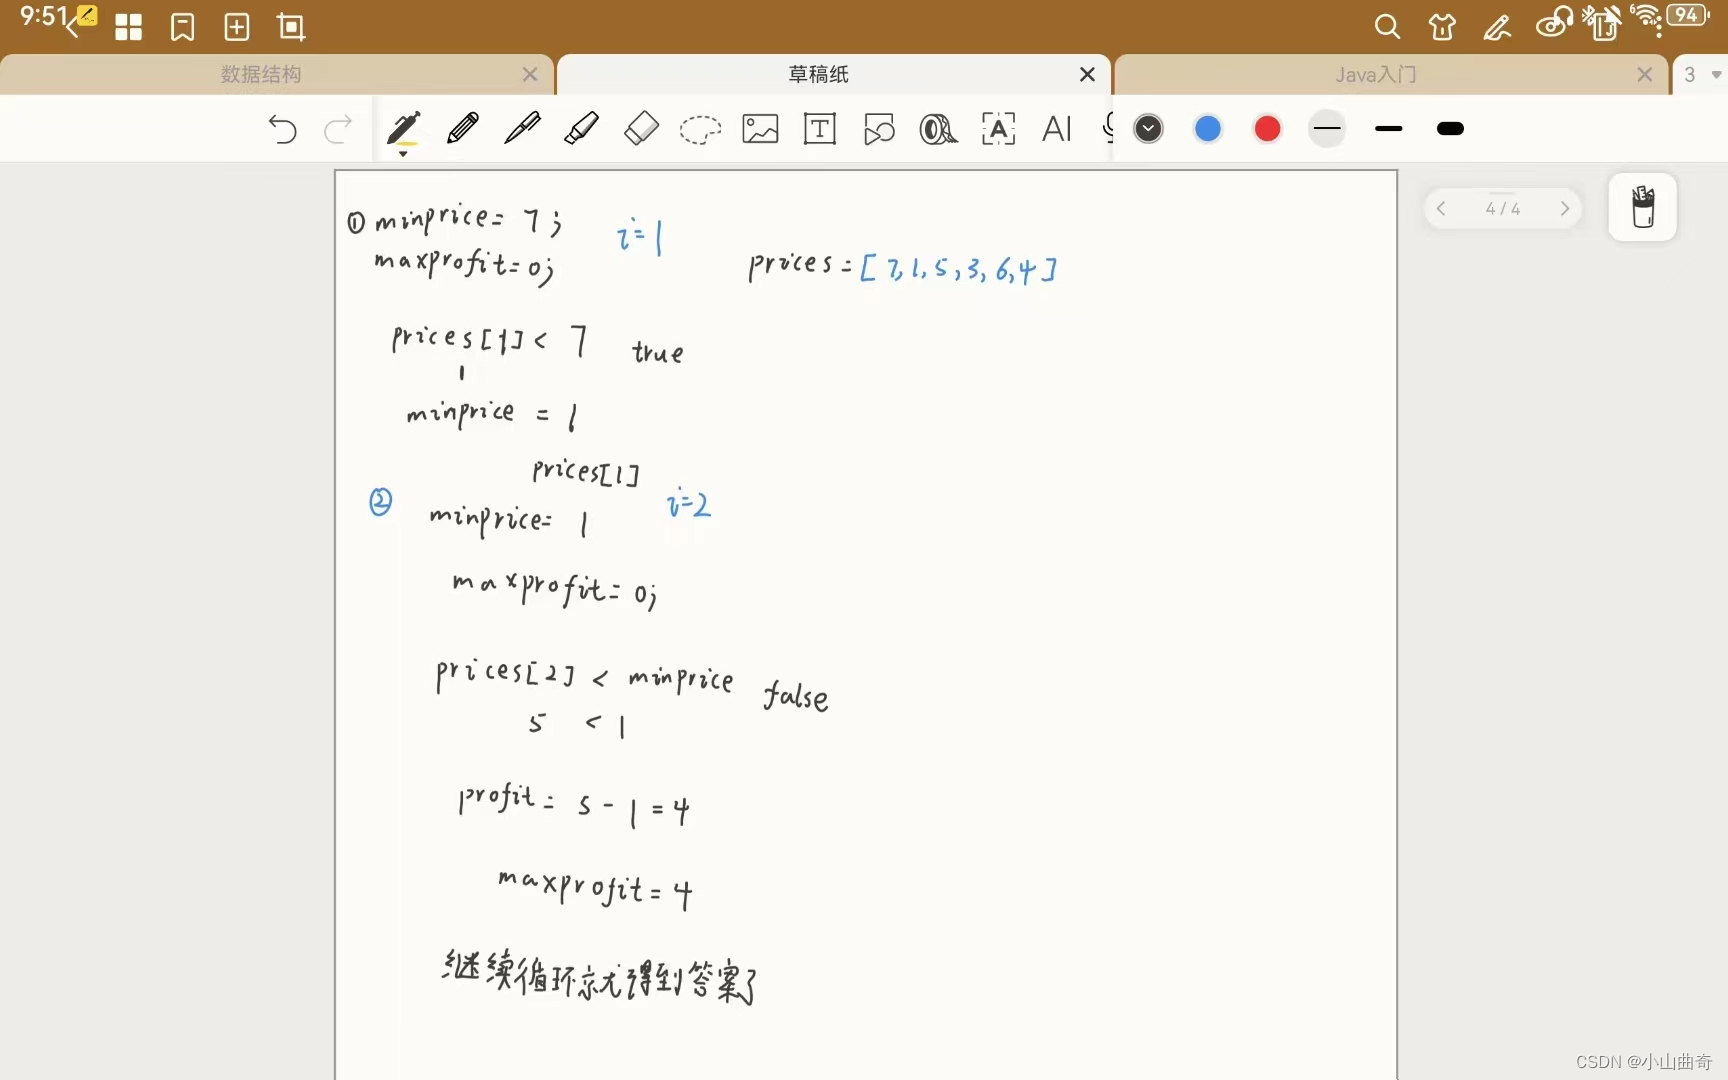 9:51
94
数据结构
草稿纸
Java入门
3
T
A
AI
4/4
① minprice = 7;
i=1
maxprofit = 0;
prices = [7,1,5,3,6,4]
prices[1] < 7
true
1
minprice = 1
prices[1]
②
minprice = 1
i=2
maxprofit = 0;
prices[2] < minprice
false
5 < 1
profit = 5 - 1 = 4
maxprofit = 4
继续循环就得到答案了
CSDN @小山曲奇